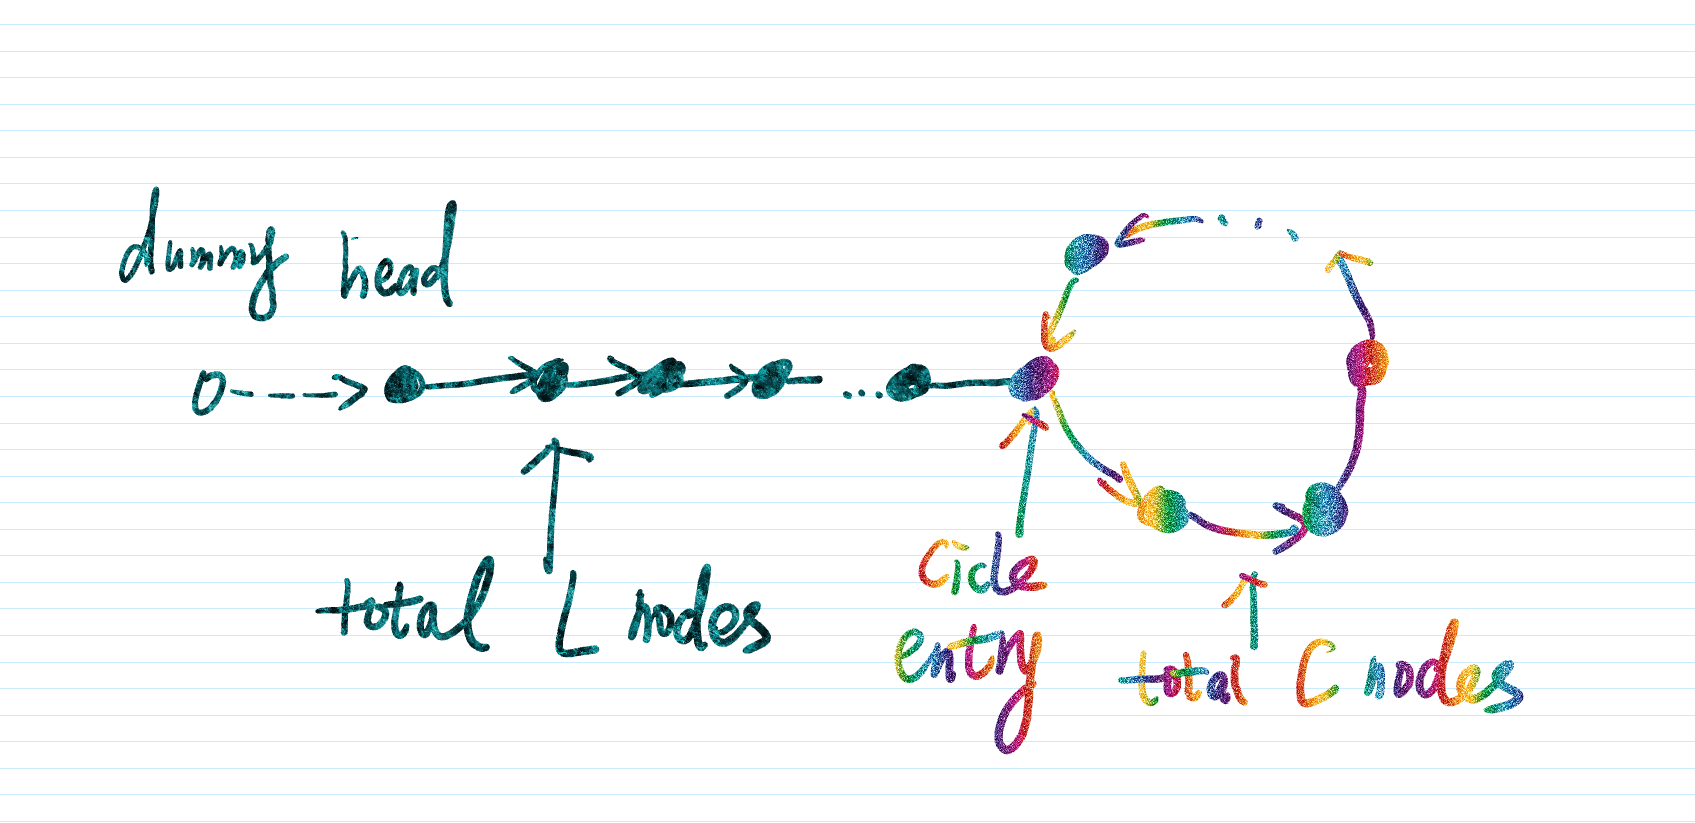 dummy head
total L nodes
Cicle
entry
total C nodes